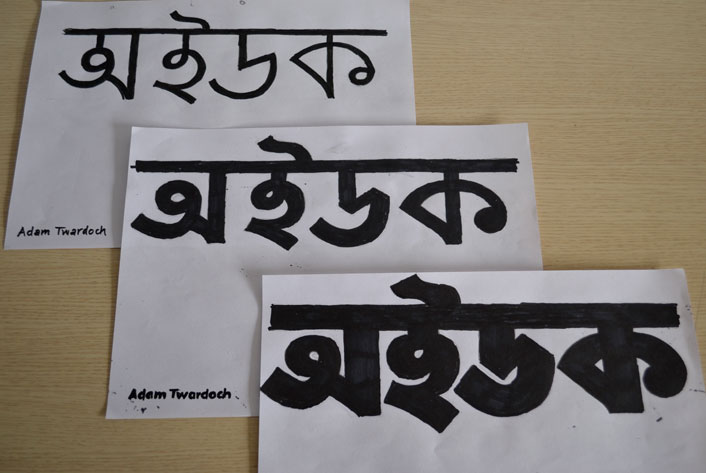 অইডক
Adam Twardoch
অইডক
Adam Twardoch
অইডক